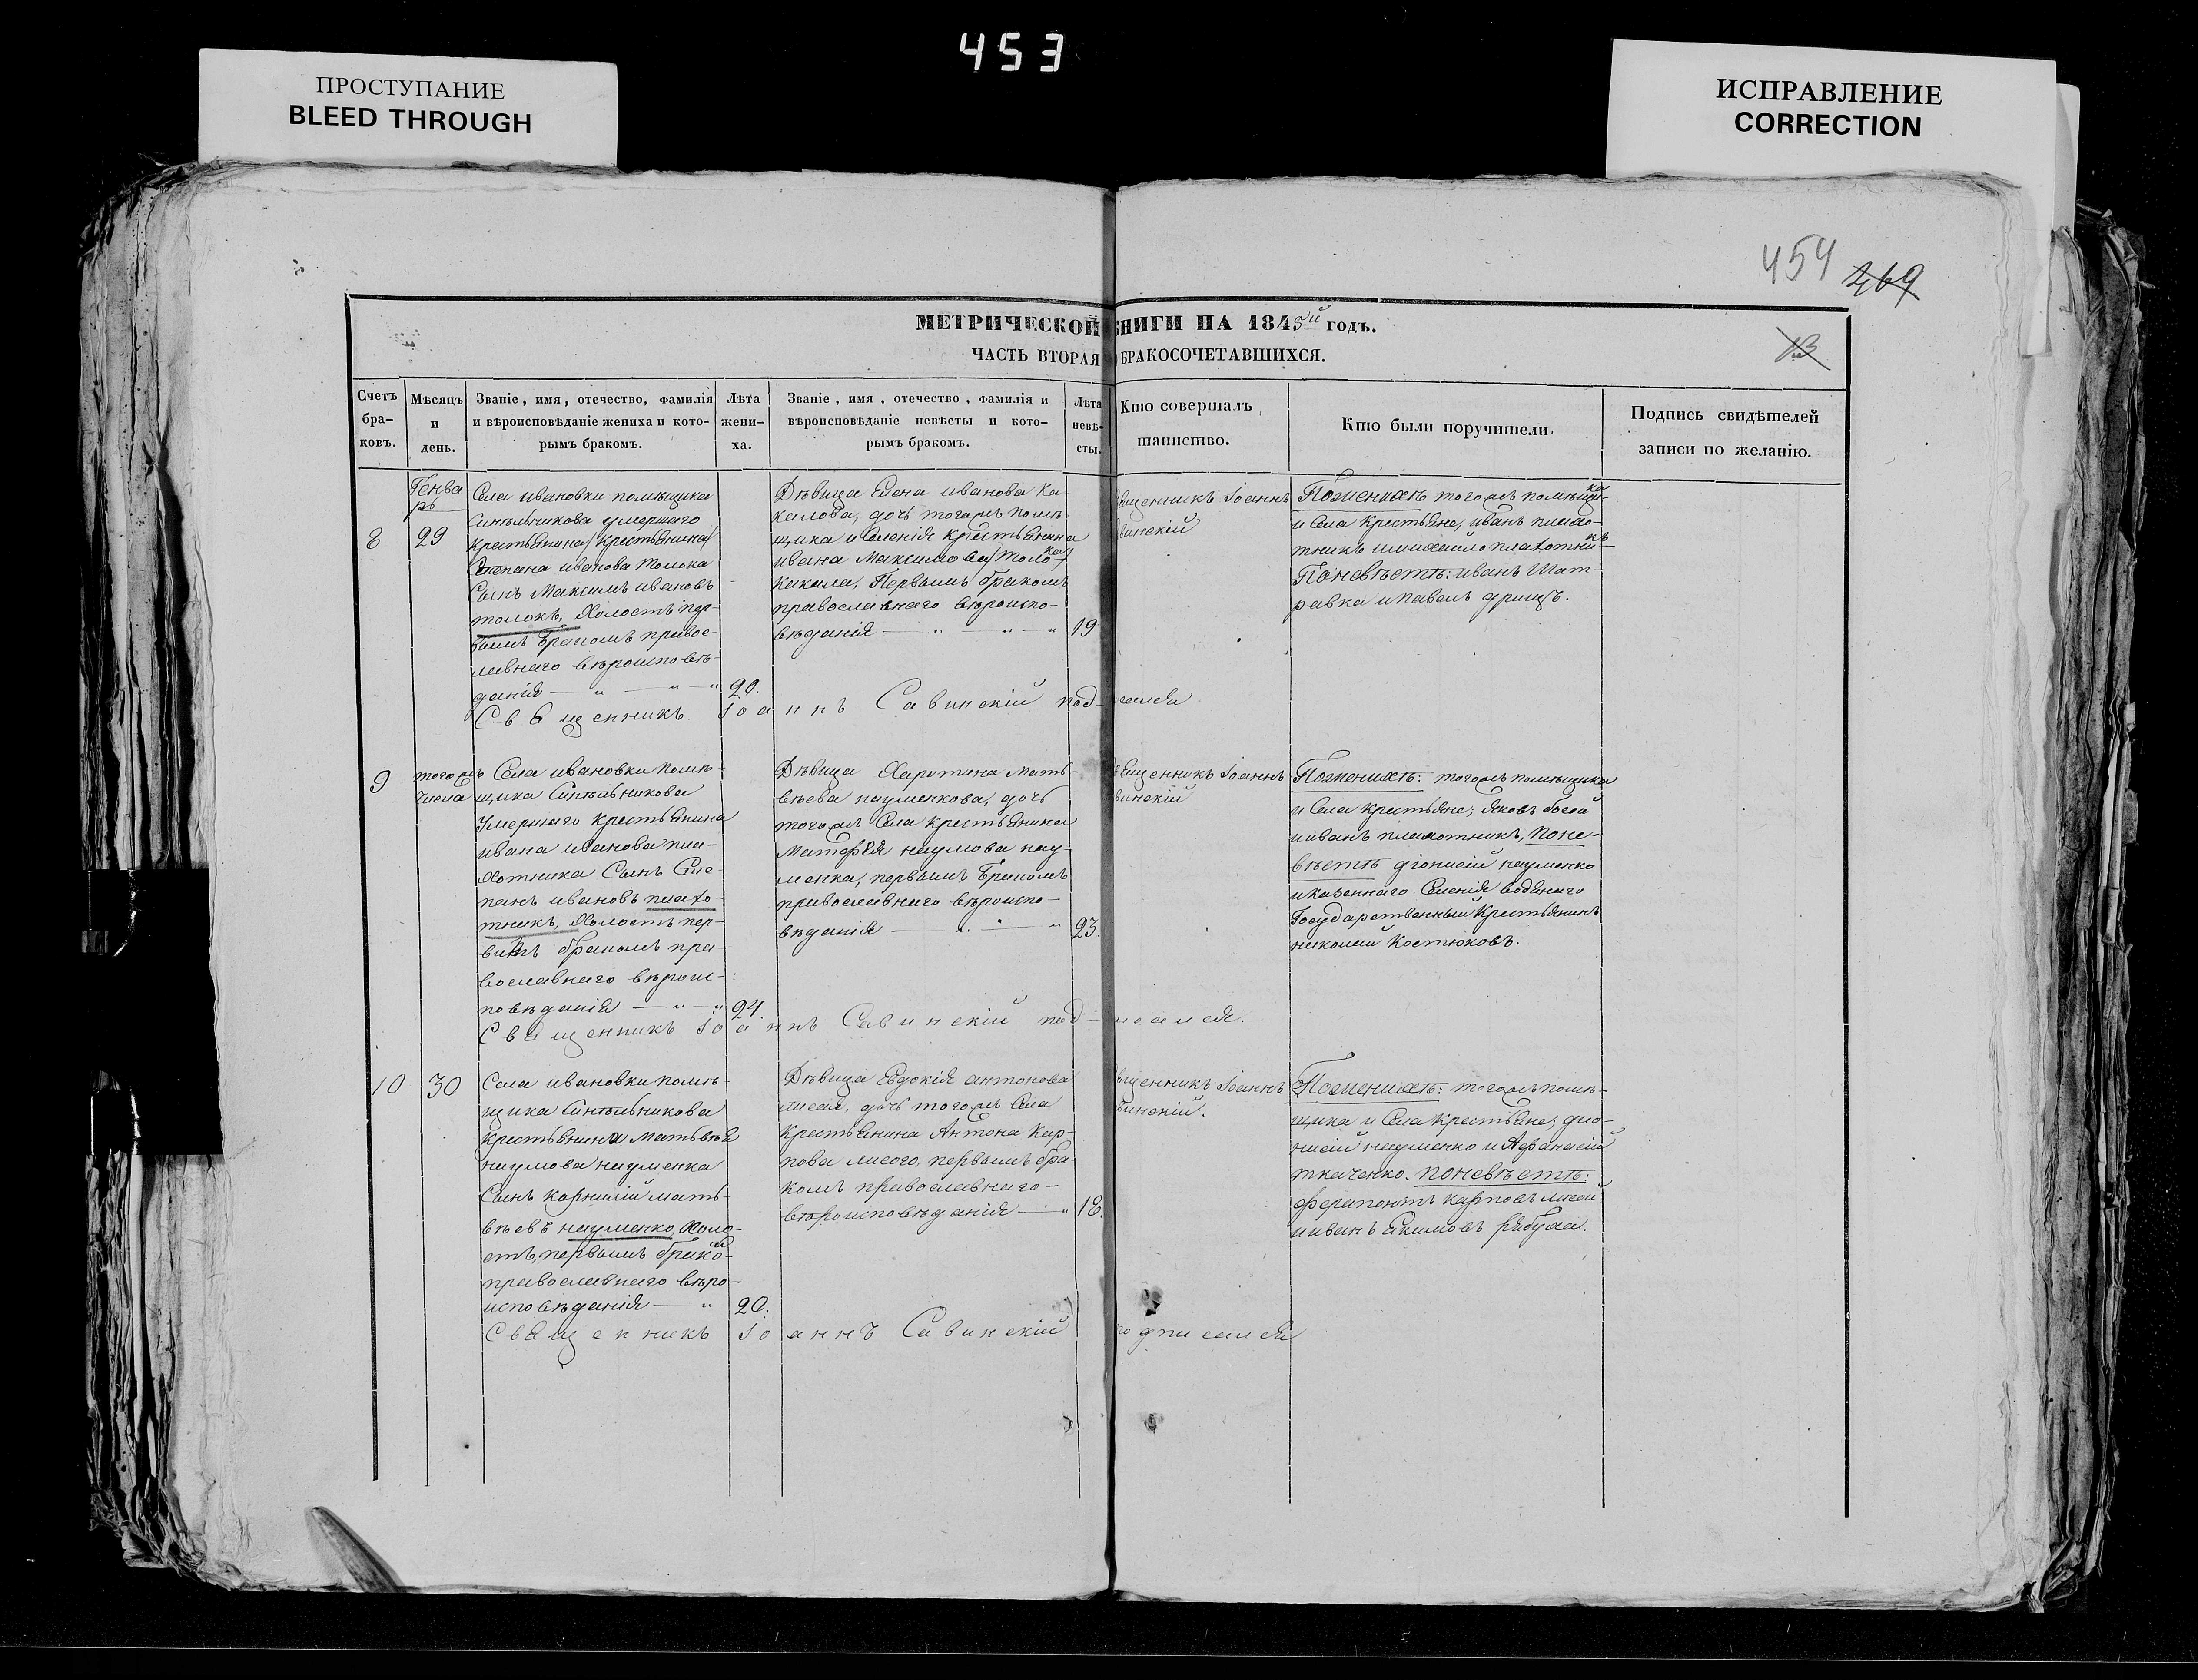 453
ПРОСТУПАНИЕ
BLEED THROUGH
ИСПРАВЛЕНИЕ
CORRECTION
454 269
МЕТРИЧЕСКОЙ КНИГИ НА 1845й годъ.
13
ЧАСТЬ ВТОРАЯ О БРАКОСОЧЕТАВШИХСЯ.
Счетъ
бра-
ковъ.
Мѣсяцъ
и
день.
Званіе, имя, отечество, фамилія
и вѣроисповѣданіе жениха и кото-
рымъ бракомъ.
Лѣта
жени-
ха.
Званіе, имя, отечество, фамилія и
вѣроисповѣданіе невѣсты и кото-
рымъ бракомъ.
Лѣта
невѣ-
сты.
Кто совершалъ
таинство.
Кто были поручители.
Подпись свидѣтелей
записи по желанію.
8
Генва
рь
29
Села ивановки помѣщика
Синѣльникова умершаго
крестьянина
Степана иванова Толока
Сынъ Максимъ ивановъ
толокъ, Холостъ пер-
вымъ бракомъ правос-
лавнаго вѣроисповѣ-
данія
20.
Дѣвица Елена иванова Ка-
калова, дочь тогожъ помѣ-
щика и Селенія крестьянина
ивана Максимова
Какала, Первымъ бракомъ
православнаго вѣроиспо-
вѣданія
19
вященникъ Іоаннъ
винскій
Поженихѣ тогожъ помѣщика
и Села крестьяне, иванъ плахо-
тникъ имихайло плахотникъ
Поневѣстѣ: иванъ Шат-
равка ипавелъ дрищъ.
Священникъ Іоаннъ Савинскій подписался
9
тогожъ
Числа
Села ивановки помѣ-
щика Синѣльникова
Умершаго крестьянина
ивана иванова пла-
хотника Сынъ Сте-
панъ ивановъ плахо-
тникъ, Холостъ пер-
вымъ бракомъ пра-
вославнаго вѣроис-
повѣданія
24.
Дѣвица Харитина Мать-
вѣева науменкова, дочь
тогожъ Села крестьянина
Матфея наумова нау-
менка, первымъ бракомъ
православнаго вѣроиспо-
вѣданія
23.
вященникъ Іоаннъ
винскій
Поженихѣ: тогожъ помѣщика
и Села крестьяне, яковъ босой
ииванъ плахотникъ, поне-
вѣстѣ діонисій науменко
иказеннаго Селенія водянаго
Государственный Крестьянинъ
николай Костюковъ.
Священникъ Іоаннъ Савинскій подписался.
10
30
Села ивановки помѣ-
щика Синѣльникова
крестьянина матьвѣя
наумова науменка
Сынъ корнилій мать-
вѣевъ науменко, Холо-
стъ, первымъ бракомъ
православнаго вѣро-
исповѣданія
20.
Дѣвица Евдокія антонова
лисая, дочь тогожъ Села
крестьянина Антона Кар-
пова лисого, первымъ бра-
комъ православнаго
вѣроисповѣданія
18.
вященникъ Іоаннъ
винскій.
Поженихѣ: тогожъ помѣ-
щика и Села крестьяне, дио-
нисій науменко и Афанасій
ткаченко. поневѣстѣ:
ферапонтъ карповъ лисой
ииванъ якимовъ рябуха.
Священникъ Іоаннъ Савинскій подписался